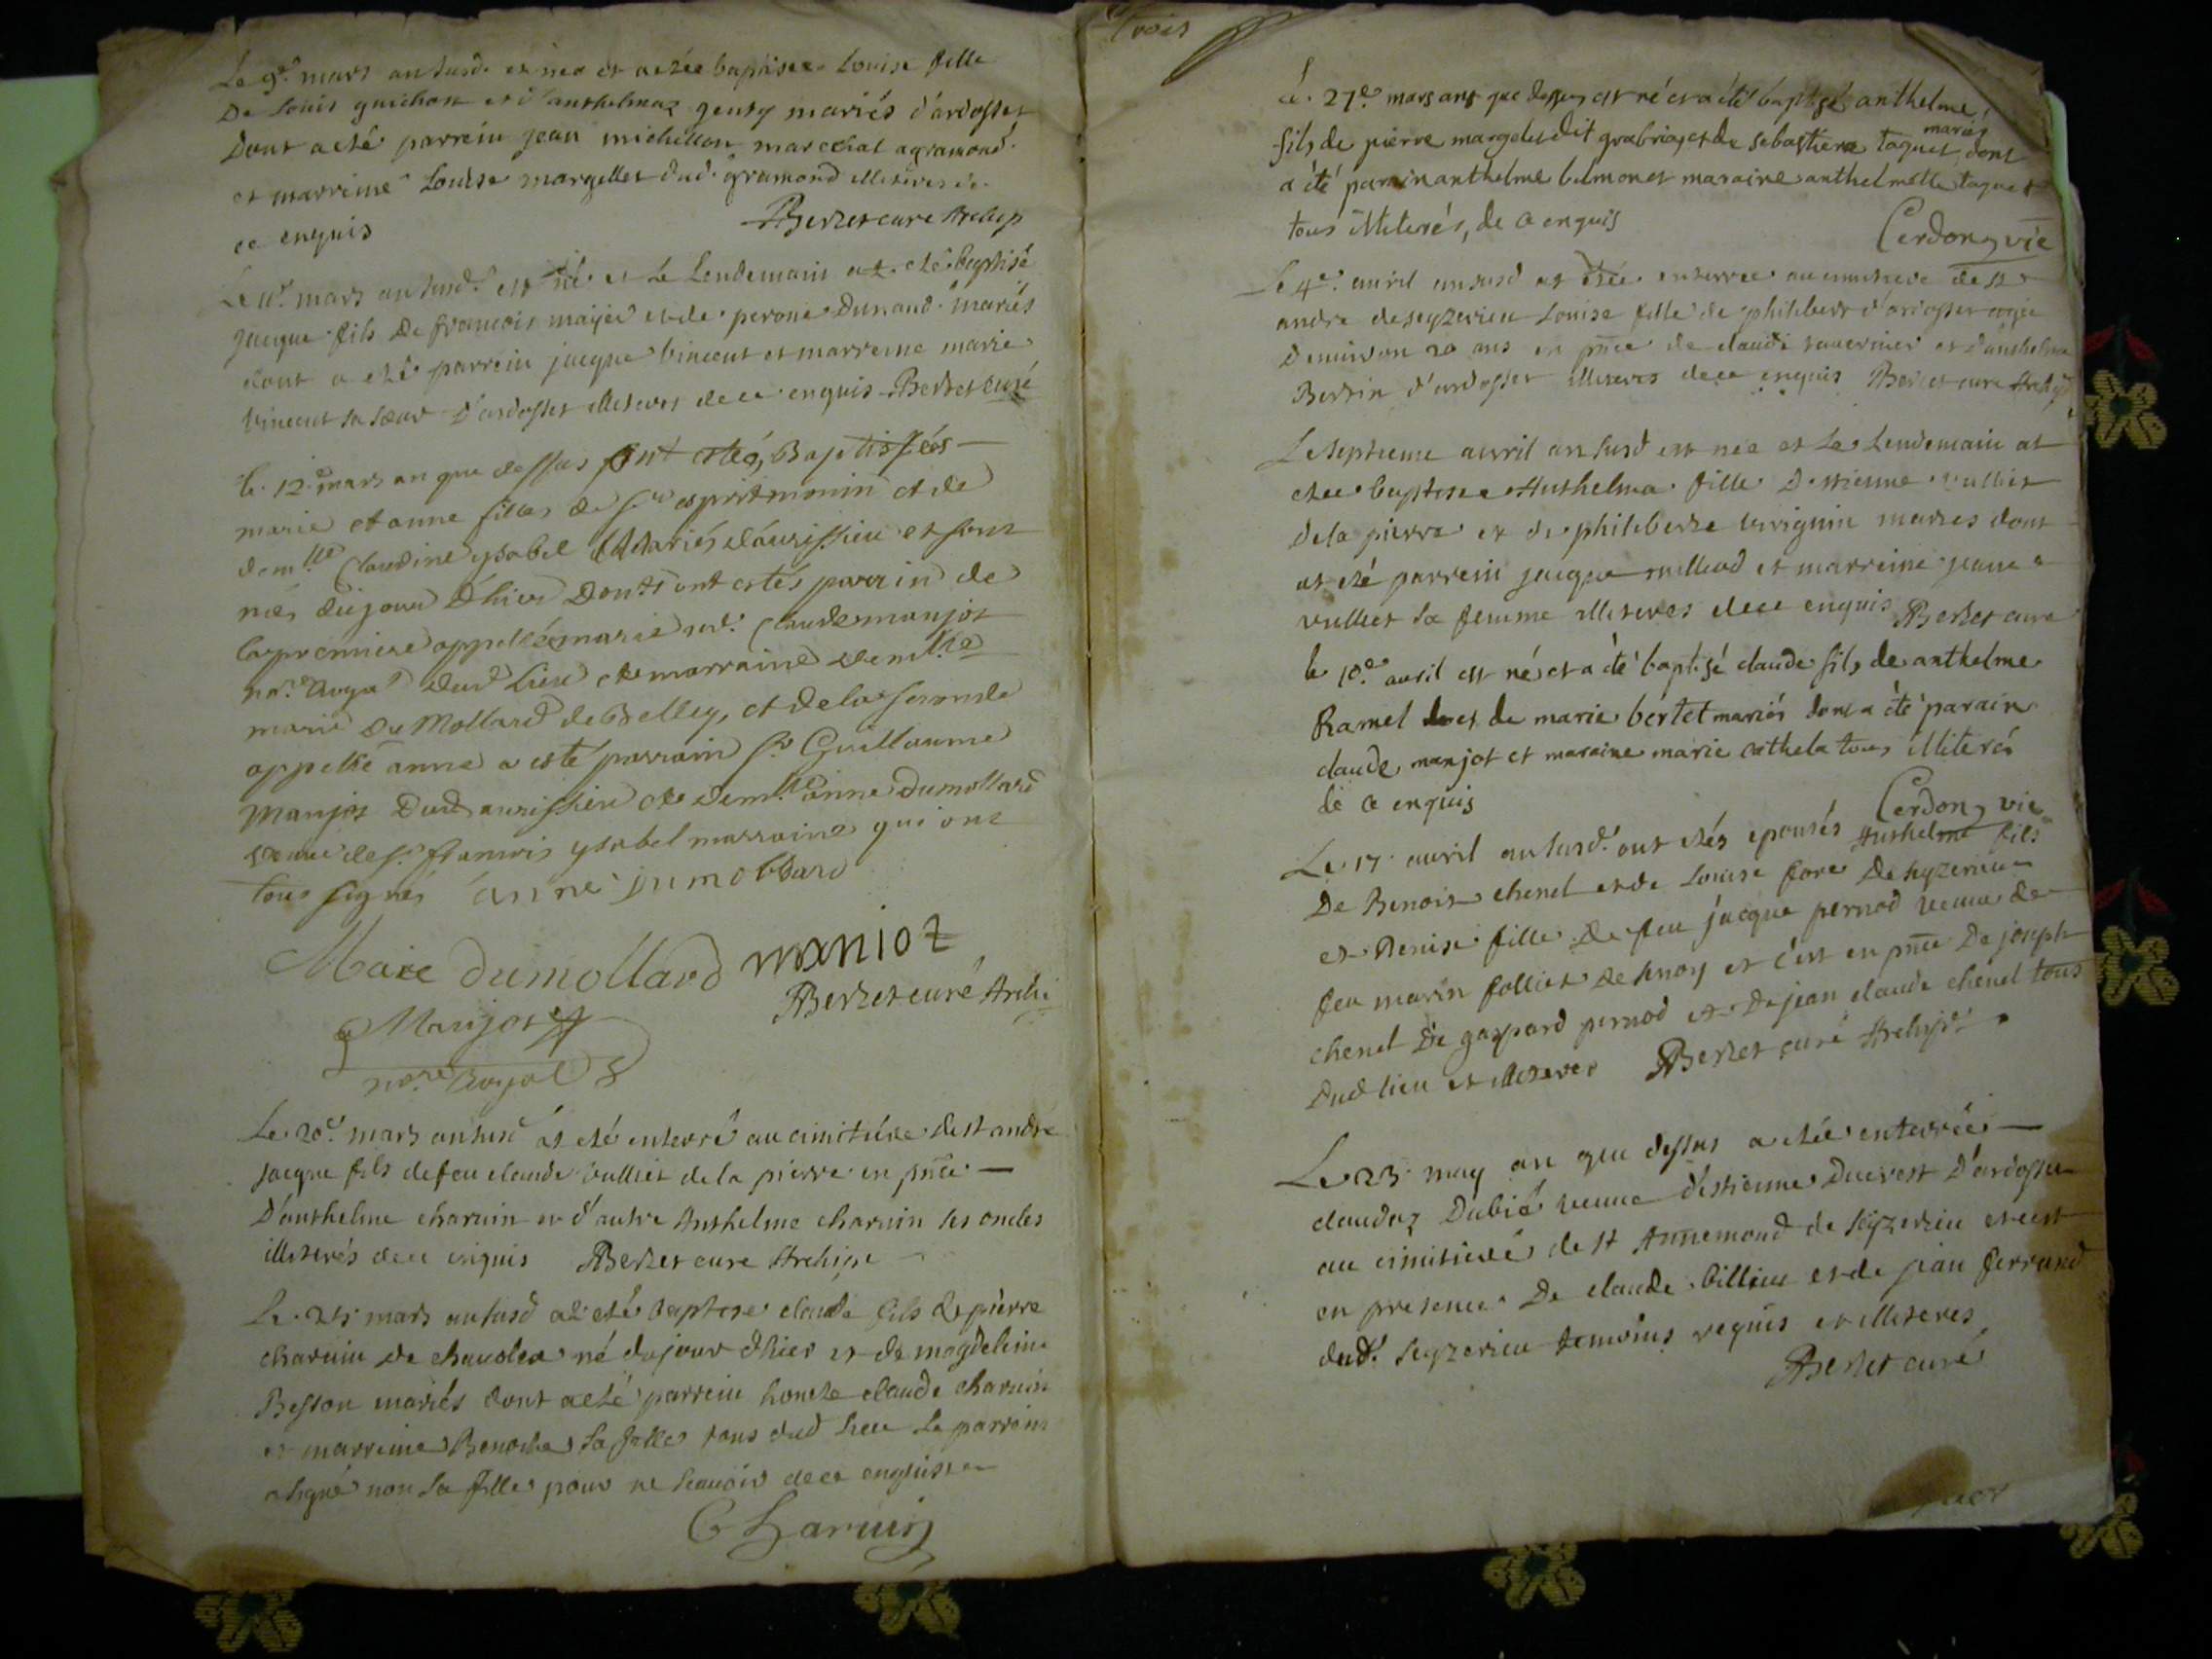 Le 9e. mars an susd. est née et a etée baptisée Louise fille
De Louis guichon et d'anthelmaz genty mariés d'ardosset
Dont a eté parrein jean michellon marechal a gramond
et marreine Louise margellet dud. gramond illiteres de
ce enquis Berzet curé Archip
Le 11e. mars an susd. est né et Le Lendemain at eté baptisé
Jacque fils De francois et de perone Dunand mariés
dont a eté parrein jacque vincent et marreine marie
vincent sa sœur d'ardosset illiteres de ce enquis Berzet curé
le 12e mars an que dessus sont estés Baptissées
marie et anne filles de sr. esprit monin et de
demlle Claudine ysabel Mariés d'aurissieu et sont
nés du jour D'hier Dont ont estés parrin de
la premiere appellée marie me. Claude manjot
nore. Royal dud Lieu et marraine demlle
marie Du Mollard de Belley, et de la seconde
appellé anne a esté parrain sr. Guillaume
Manjot Dud aurissieu et demlle anne dumollard
veuve de sr. francois ysabel marraine qui ont
tous signés anne dumollard
Marie dumollard manjot
Berzet curé Archi
Manjot
nore Royal
Le 20e. mars an susd at eté enterré au cimitiére de st andré
jacque fils de feu claude vulliet de la pierre en pnce
D'anthelme charvin et d'autre Anthelme charvin ses oncles
illiterés de ce enquis Berzet cure Archipr
Le 24 mars an susd at eté baptise claude fils de pierre
charvin de né du jour dhier et de magdeleine
Besson mariés dont a eté parrein honete claude charvin
et marreine Benoite sa fille tous dud lieu Le parrein
a signé non la fille pour ne scavoir de ce enquise
C Charvin
trois
Le 27e. mars ans que dessus est né et a été baptisé anthelme
fils de pierre margelet dit et de sebastiene taquet mariés dont
a été parain anthelme belmon et maraine anthelmette taquet
tous illiterés, de ce enquis Cerdon, vic
Le 4e. avril an susd at etée enterrée au cimitiere de st
andre de seyzerieu Louise fille de philibert d'ardosset agée
d'environ 20 ans en pnce de claude et d'anthelme
Bertin d'ardosset illiteres de ce enquis Berzet cure Archip
Le septieme avril an susd est née et Le Lendemain at
etée baptisée Anthelma fille D'estienne vulliet
de la pierre et de philiberte viriguin mariés dont
at eté parrein jacque et marreine jeane
vulliet sa femme illiteres de ce enquis Berzet cure
le 10e avril est né et a été baptisé claude fils de anthelme
Ramel et de marie bértet mariés dont a été parain
claude manjot et maraine marie tous illiterés
de ce enquis Cerdon, vic
Le 17 avril an susd. ont etés epousés Anthelme fils
De Benoist chenel et de Louise foré De seyzerieu
et Denise fille De feu jacque pernod veuve de
feu marin folliet De et c'est en pnce De joseph
chenel De gaspard pernod et De jean claude chenel tous
Dud lieu et illiteres Berzet curé Archipr
Le 23 may an que dessus a etée enterrée
claudaz Dubié veuve d'estienne Ducrest D'ardosset
au cimitiere de st Annemond de seyzerieu et c'est
en presence De claude billieu et de jean ferrand
dud. seyzerieu temoins requis et illiteres
Berzet curé